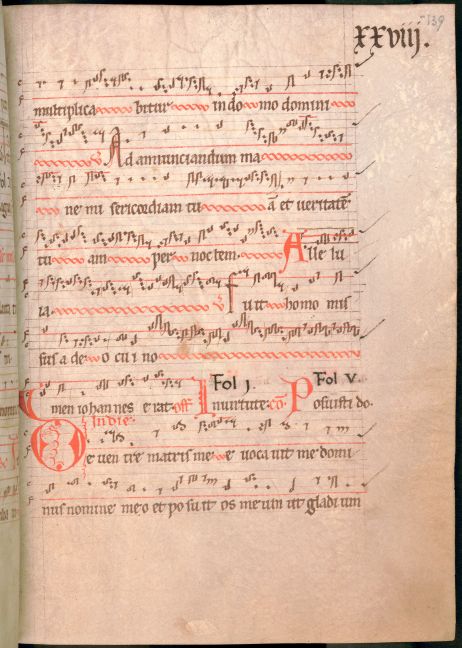 139
xxviij.
multiplica bitur in do mo domini
Ad annunciandum ma
ne mi sericordiam tu ā et veritatē
tu am per noctem. Alle lu
ia. ℣ fuit homo mis
sus a de o cui no
men iohannes erat off Fol j. In uirtute cō Fol v. Posuisti do.
In die
De uen tre matris me e uocauit me domi
nus nomine me o et posuit os meum ut gladium